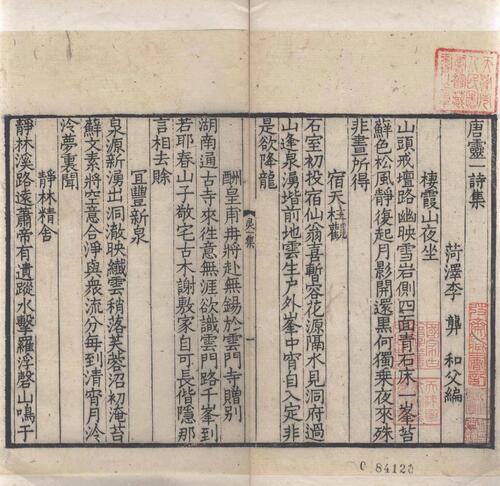 唐靈一詩集
菏澤李 龏 和父編
棲霞山夜坐
山頭戒壇路幽映雪岩側四面青石床一峯苔
蘚色松風靜復起月影開還黑何獨乗夜來殊
非晝所得
宿天柱觀
石室初投宿仙翁喜暫容花源隔水見洞府過
山逢泉湧堦前地雲生戶外峯中宵自入定非
是欲降龍
灵一集 一
酬皇甫冉將赴無錫於雲門寺贈別
湖南通古寺來徃意無涯欲識雲門路千峯到
若耶春山子敬宅古木謝敷家自可長偕隱那
言相去賒
宜豐新泉
泉源新湧出洞澈映纎雲稍落芙蓉沼初淹苔
蘚文素將空意合淨與衆流分每到清宵月泠
泠夢裏聞
靜林精舍
靜林溪路遠蕭帝有遺蹤水擊羅浮磬山鳴于
084120